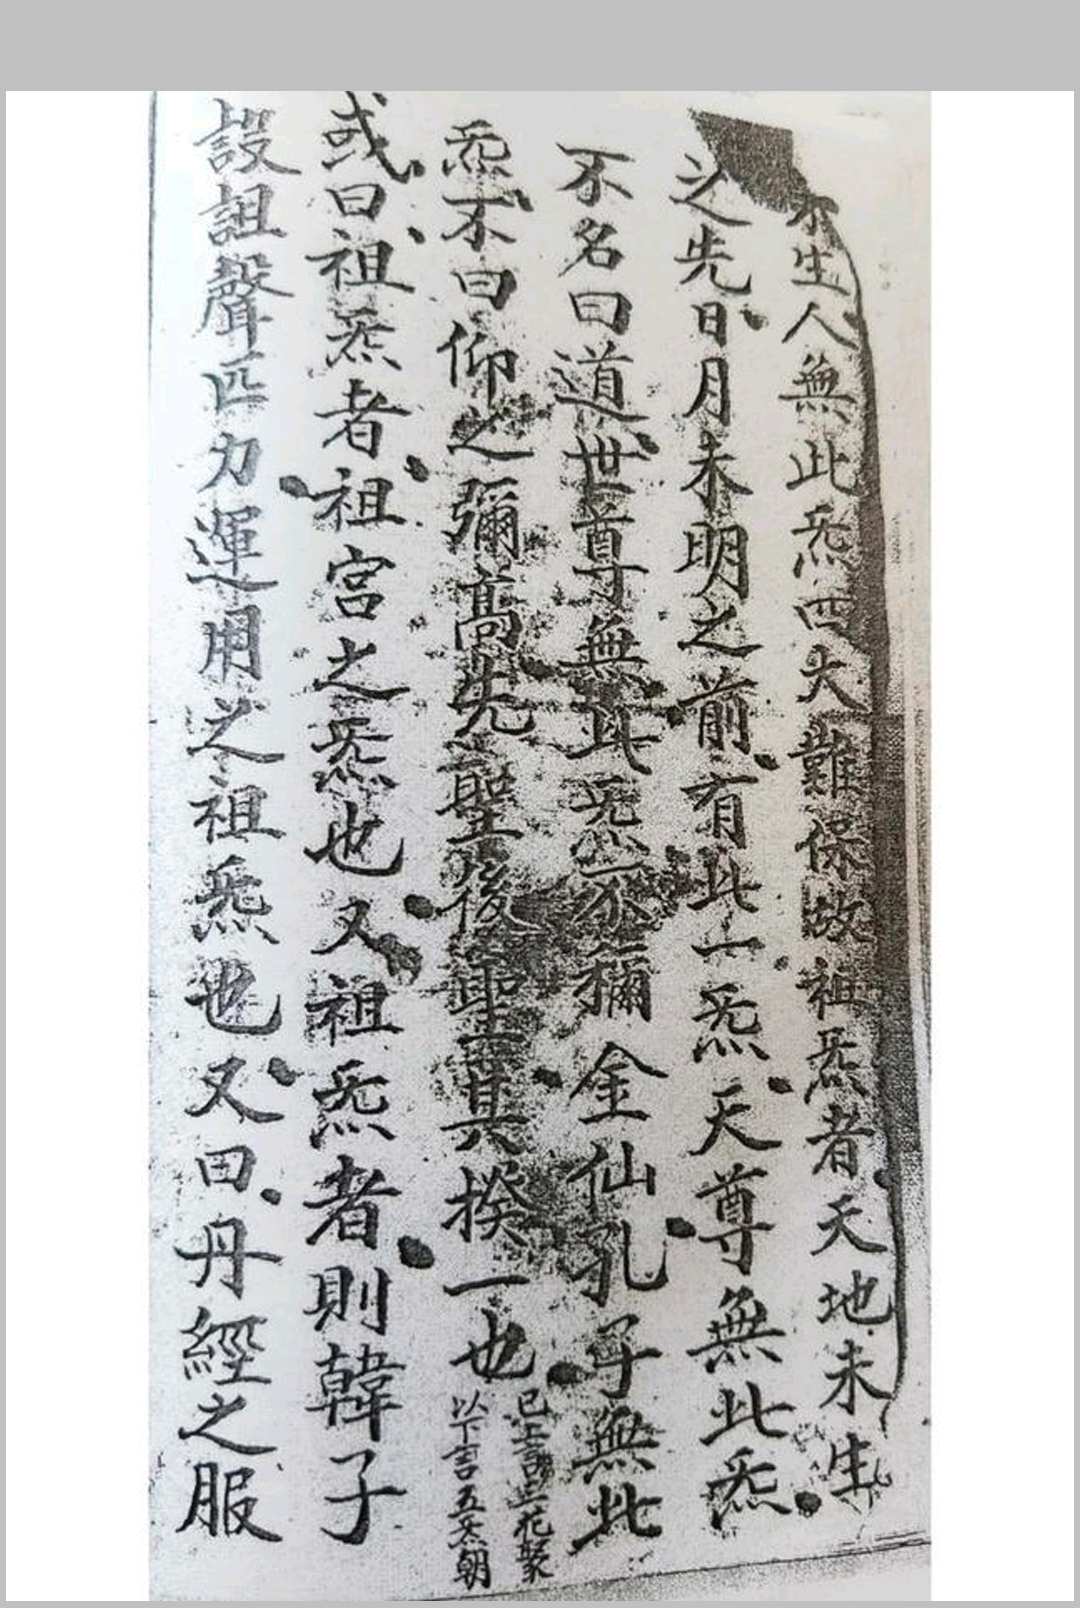 不生人無此炁四大難保故祖炁者天地未生
之先日月未明之前有此一炁天尊無此炁
不名曰道世尊無此炁不彌金仙孔子無此
炁不曰仰之彌高先聖後聖其揆一也
已上言三花聚
以下言五炁朝
或曰祖炁者祖宮之炁也又祖炁者則韓子
設詛聲匹力運用之祖炁也又曰丹經之服